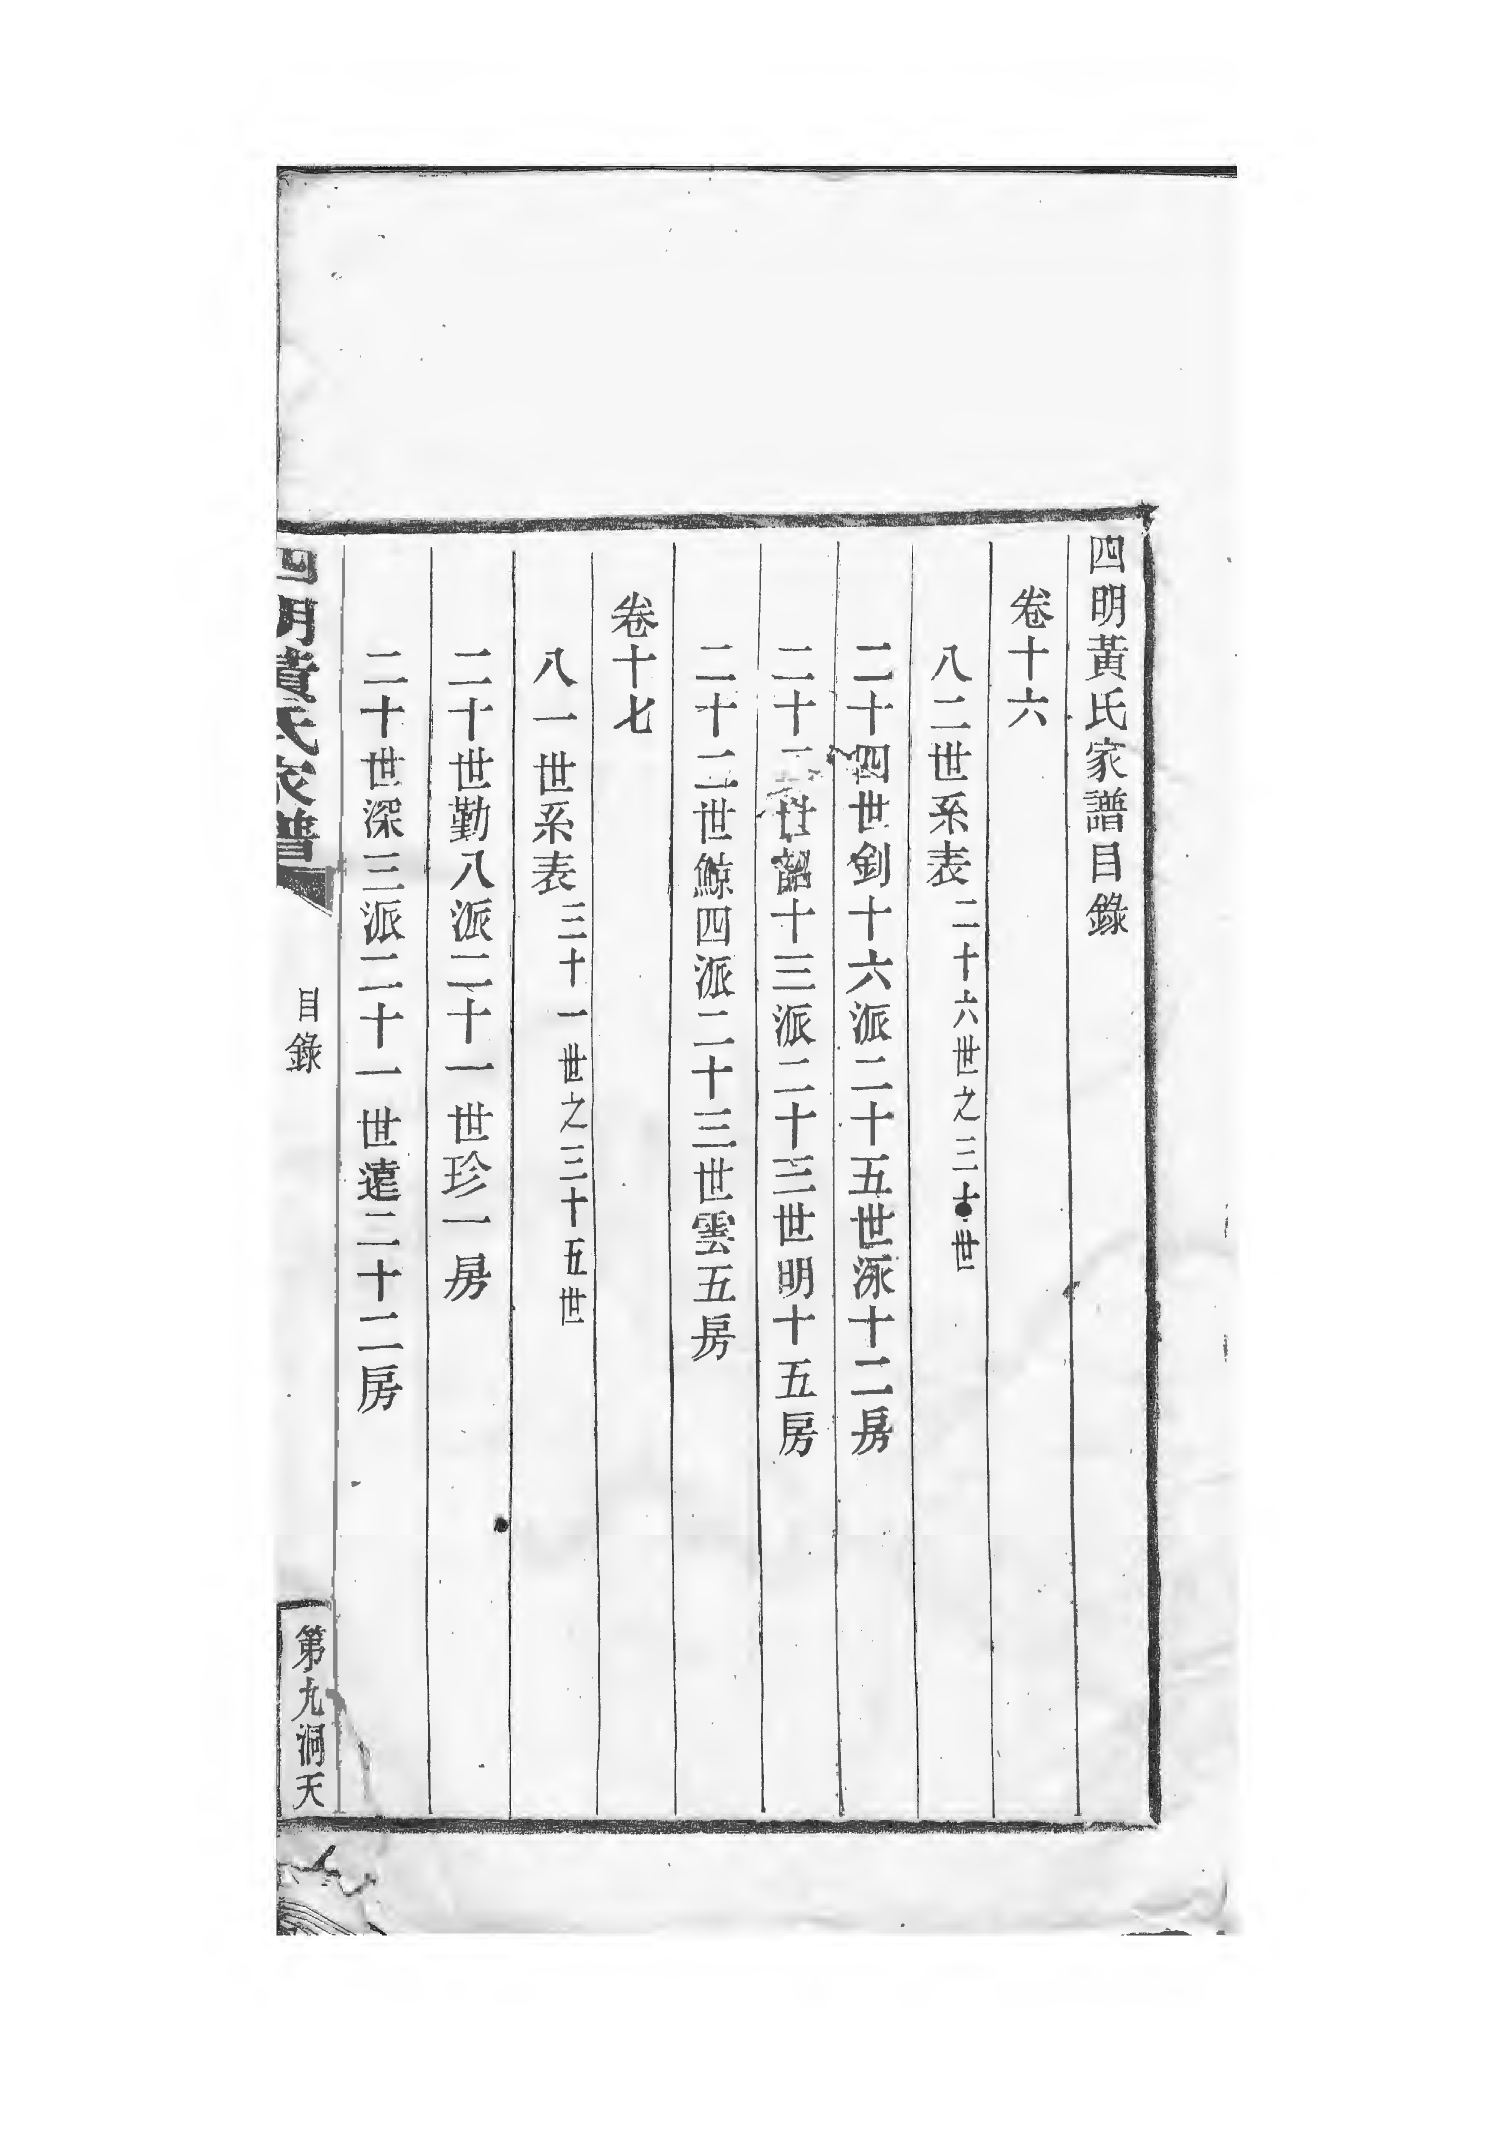 四明黃氏家譜目錄
卷十六
八二世系表 二十六世之三十世
二十四世釗十六派二十五世泳十二房
二十二世韶十三派二十三世明十五房
二十二世鯨四派二十三世雲五房
卷十七
八一世系表 三十一世之三十五世
二十世勤八派二十一世珍一房
二十世深三派二十一世遠二十二房
四明黃氏家譜 目錄 第九洞天